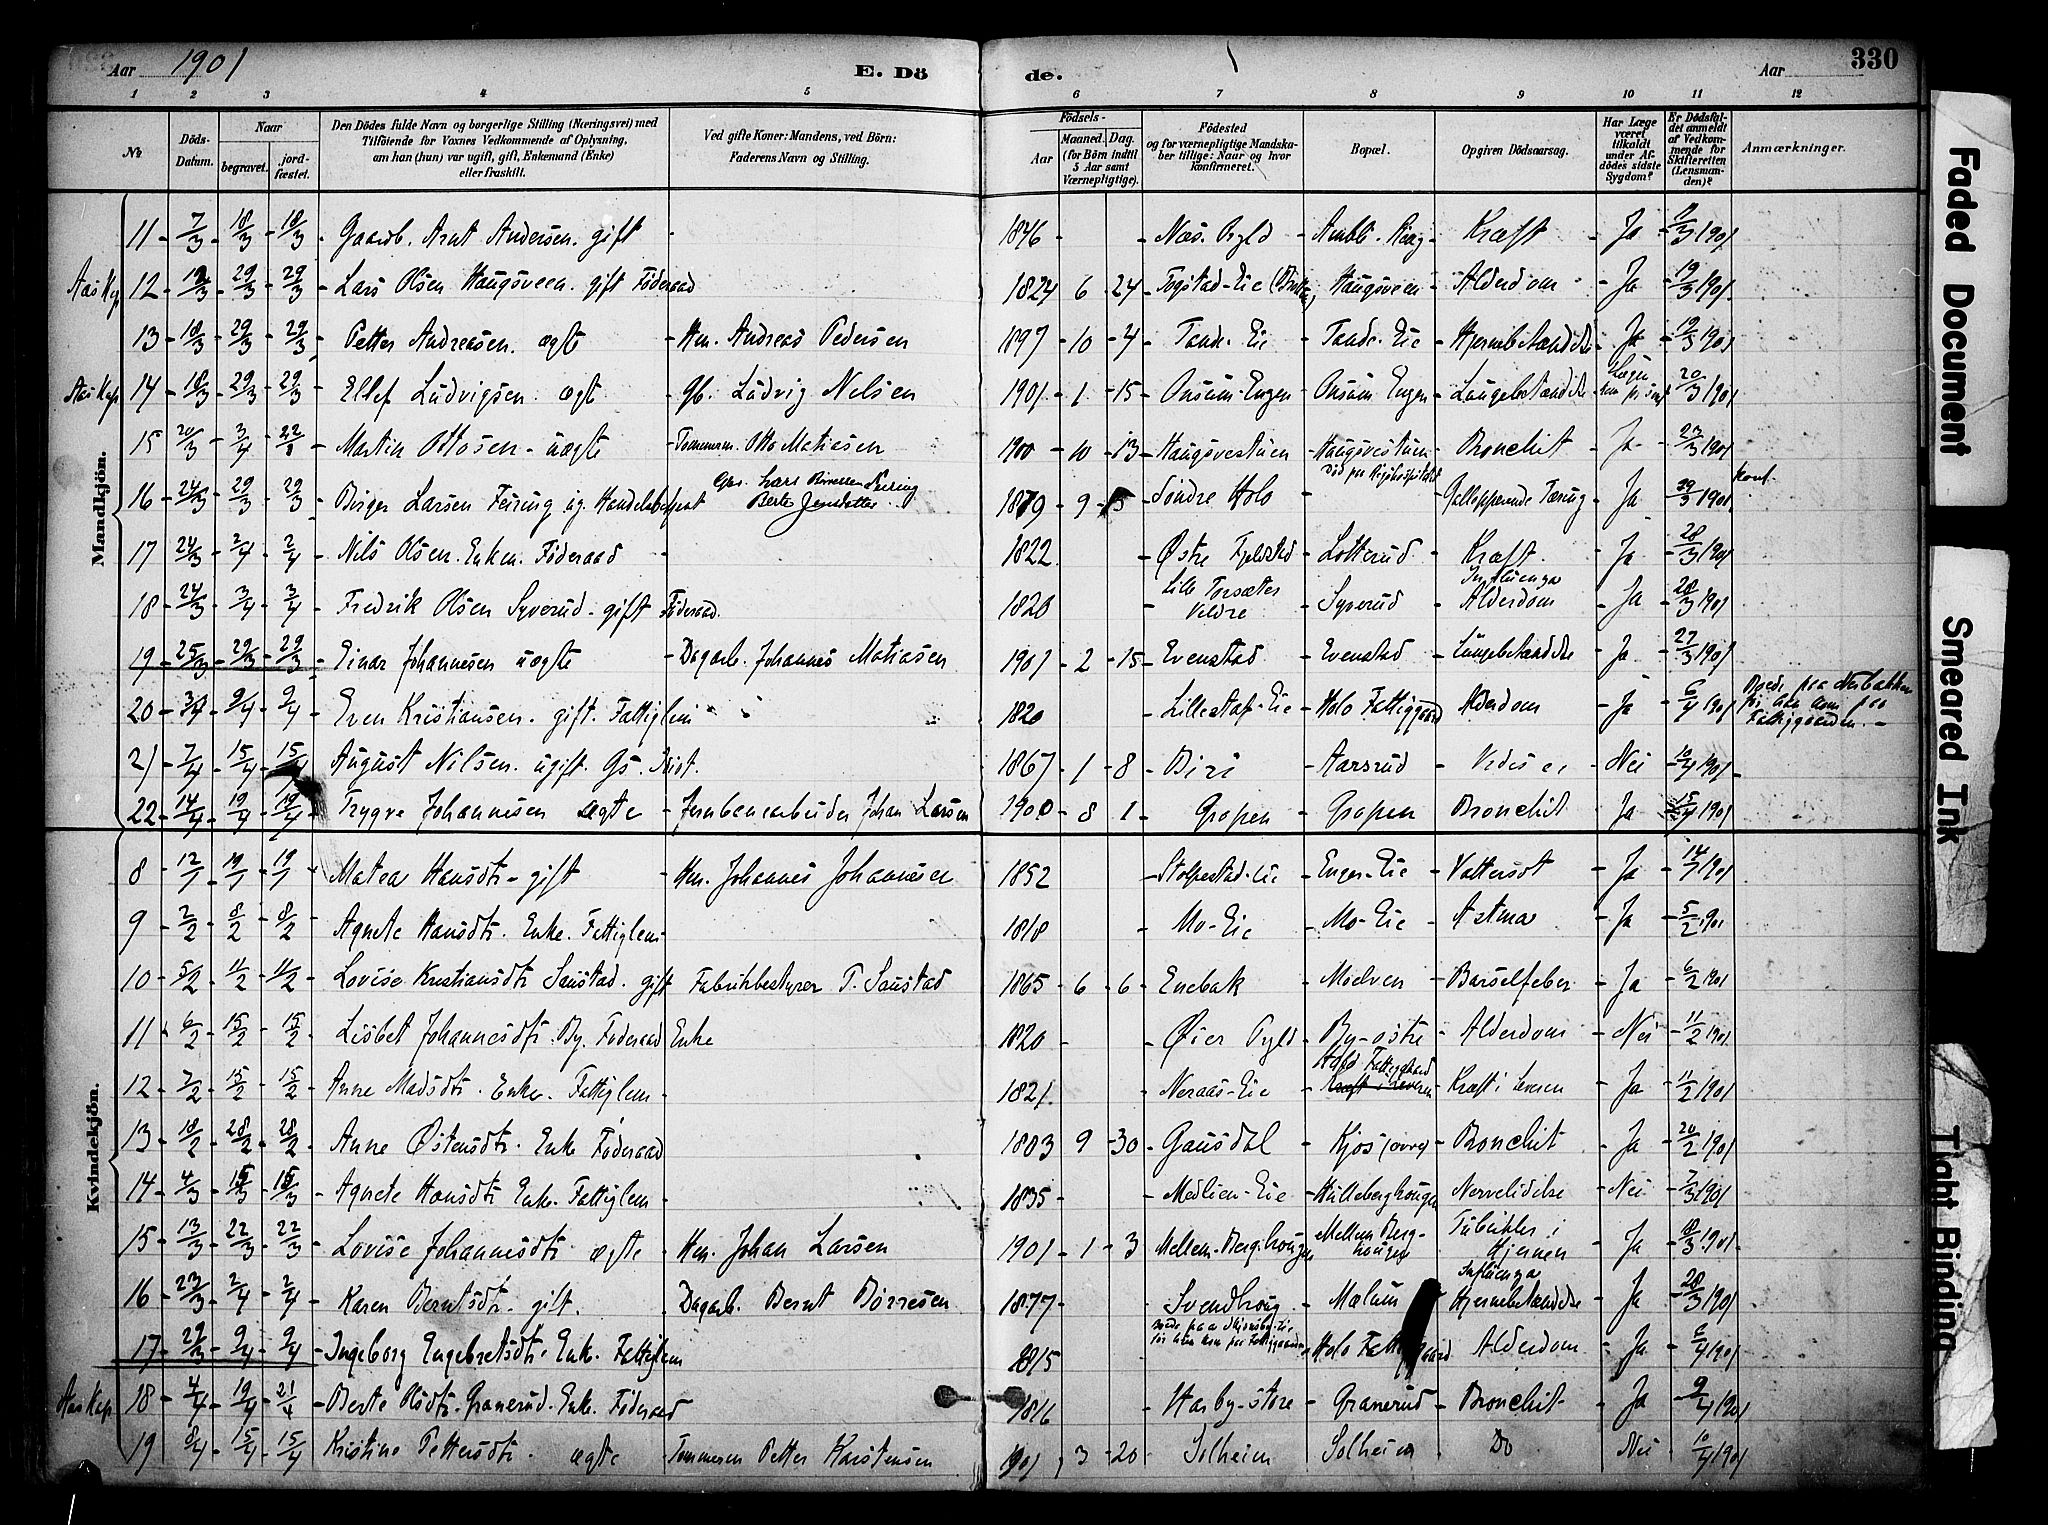 Aar 1901 E. Dö de. Aar 330
1 2 3 4 5 6 7 8 9 10 11 12
№ Döds-Datum. Naar begravet. jordfæstet. Den Dödes fulde Navn og borgerlige Stilling (Næringsvei) med Tilföiende for Voxnes Vedkommende af Oplysning, om han (hun) var ugift, gift, Enkemand (Enke) eller fraskilt. Ved gifte Koner: Mandens, ved Börn: Faderens Navn og Stilling. Födsels- Aar Maaned. Dag. (for Börn indtil 5 Aar samt Værnepligtige). Födested og for værnepligtige Mandskaber tillige: Naar og hvor konfirmeret. Bopæl. Opgiven Dödsaarsag. Har Læge været tilkaldt under Afdödes sidste Sygdom? Er Dödsfaldet anmeldt af Vedkommende for Skifteretten (Lensmanden)? Anmærkninger.
Mandkjön.
11 7/3 18/3 18/3 Gaardb. Arnt Andersen. gift 1846 Næs. Kræft Ja 9/3 1901
Aas Kap 12 29/3 29/3 Lars Olsen Haugsveen. gift Föderaad 1824 6 24 Haugsveen Alderdom Ja 19/3 1901
13 18/3 29/3 29/3 Petter Andreassen. ægte Hm. Andreas Pedersen 1897 10 4 Tande-Eie Tande-Eie Hjernebetændelse Ja 19/3 1901
Aas Kap 14 18/3 29/3 29/3 Ellef Ludvigsen. ægte Gb. Ludvig Nilsen 1901 1 15 Onsum-Engen Onsum Engen Lungebetændelse 20/3 1901
15 20/3 3/4 Martin Ottosen uægte Tømmerm. Otto Matiasen 1900 10 13 Haugsvestuen Haugsvestuen Bronchit Ja 23/3 1901
16 24/3 29/3 29/3 Birger Larsen Feiring ug. Handelsbetjent Lars Feiring Berte 1879 9 15 Söndre Holo Död paa Rigshospitalet Galopperende Tæring Ja 29/3 1901
17 24/3 2/4 2/4 Nils Olsen. Enkem. Föderaad 1822 Østre Fjeldstad Lotterud Kræft. Ja 28/3 1901
18 24/3 3/4 3/4 Fredrik Olsen Syverud. gift Föderaad. 1820 Lille Torsæter Veldre Syverud Influenza Alderdom Ja 28/3 1901
19 25/3 29/3 29/3 Einar Johannesen uægte Dagarb. Johannes Matiasen 1901 2 15 Evenstad Evenstad Lungebetændelse Ja 27/3 1901
20 9/4 9/4 Even Kristiansen. gift. Fattiglem 1820 Holo Fattiggaard Alderdom Ja 6/4 1901 Boede paa för han kom paa Fattiggaarden.
21 7/4 15/4 15/4 August Nilsen. ugift. Gs. 1867 1 8 Biri Aarsrud Nei 10/4 1901
22 14/4 19/4 19/4 Trygve Johannesen ægte Jernbanearbeider Johan Larsen 1900 8 1 Gropen Gropen Bronchit Ja 15/4 1901
Kvindekjön.
8 12/1 19/1 19/1 Matea Hansdtr. gift Hm. Johannes Johannesen 1852 Stolpestad-Eie Enger-Eie Vattersot Ja 14/1 1901
9 2/2 8/2 8/2 Agnete Hansdtr. Enke. Fattiglem 1818 Mo-Eie Mo-Eie Astma Ja 5/2 1901
10 5/2 11/2 11/2 Lovise Kristiansdtr Saustad. gift Fabrikbestyrer T. Saustad 1865 6 6 Enebak Moelven Barselfeber Ja 6/2 1901
11 6/2 15/2 15/2 Lisbet Johannesdtr. By. Föderaad Enke 1820 Øier By-østre Alderdom Nei 11/2 1901
12 7/2 15/2 15/2 Anne Madsdtr. Enke. Fattiglem 1821. Neraas-Eie Holo Fattiggaard Kræft i Leveren Kræft i Leveren Ja 11/2 1901
13 18/2 28/2 28/2 Anne Østensdtr. Enke Föderaad 1803 9 30 Gausdal Kjos (øvre) Bronchit Ja 20/2 1901
14 4/3 15/3 15/3 Agnete Hansdtr. Enke. Fattiglem 1835 Medlien-Eie Hulleberghougen Nervelidelse Nei 7/3 1901
15 13/3 22/3 22/3 Lovise Johannesdtr. ægte Hm. Johan Larsen 1901 1 3 Mellem-Berghougen Mellem Berghougen Tuberkler i Hjernen Ja 18/3 1901
16 23/3 2/4 2/4 Karen Berntsdtr. gift. Dagarb. Bernt Börresen 1877 Svendhoug Mælum Influenza Hjernebetændelse Ja 28/3 1901
17 29/3 9/4 9/4 Ingeborg Engebretsdtr. Enke. Fattiglem 1815 för hun kom paa Fattiggaarden Holo Fattiggaard Alderdom Ja 6/4 1901
Aas Kap 18 4/4 19/4 21/4 Berte Olsdtr. Granerud. Enke. Föderaad 1816 Harby-store Granerud Bronchit Ja 9/4 1901
19 8/4 15/4 15/4 Kristine Pettersdtr. ægte Tømmerm Petter Karstensen 1901 3 20 Solheim Solheim Do Nei 10/4 1901
Faded Document
Smeared Ink
Tight Binding